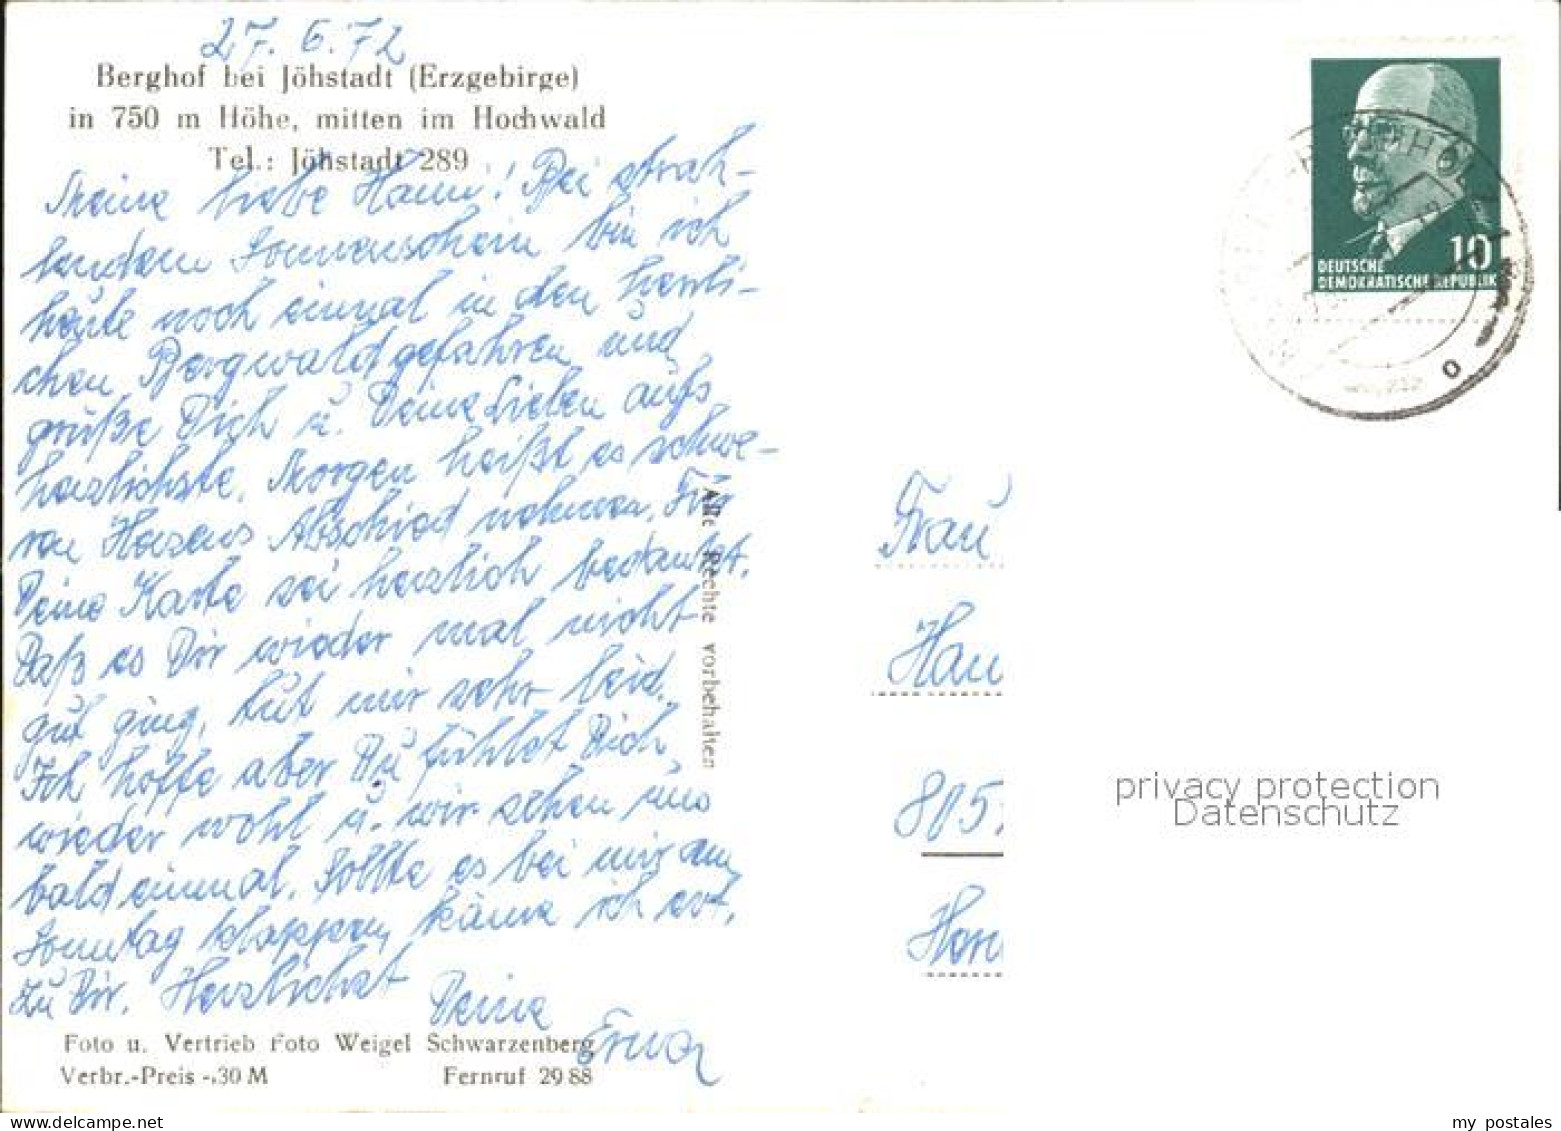 27. 6. 72
Berghof bei Jöhstadt (Erzgebirge)
in 750 m Höhe, mitten im Hochwald
Tel.: Jöhstadt 289
Meine liebe Hanni! Bei strah-
lendem Sonnenschein bin ich
heute noch einmal in den herrli-
chen Bergwald gefahren und
grüße Dich u. Deine Lieben aufs
herzlichste. Morgen heißt es schwe-
ren Herzens Abschied nehmen. Für
Deine Karte sei herzlich bedankt.
Daß es Dir wieder mal nicht
gut ging, tut mir sehr leid.
Ich hoffe aber Du fühlst Dich
wieder wohl u. wir sehen uns
bald einmal. Sollte es bei mir am
Sonntag klappen, käme ich evt.
zu Dir. Herzlichst
Deine
Erna
Foto u. Vertrieb Foto Weigel Schwarzenberg
Verbr.-Preis -,30 M Fernruf 29 88
Alle Rechte vorbehalten
10
DEUTSCHE
DEMOKRATISCHE REPUBLIK
Frau
Han
805
Hor
privacy protection
Datenschutz
my postales